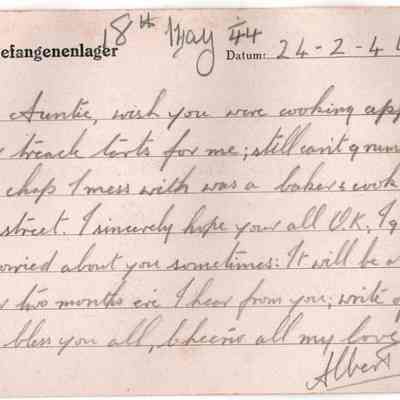 efangenenlager 18th May 44 Datum: 24-2-44
Auntie, wish you were cooking app
treacle tarts for me; still can't grum
chap I mess with was a baker & cook
street. I sincerely hope your all O.K. I g
orried about you sometimes: It will be a
two months ere I hear from you; write o
bless you all, cheerio all my love
Albert